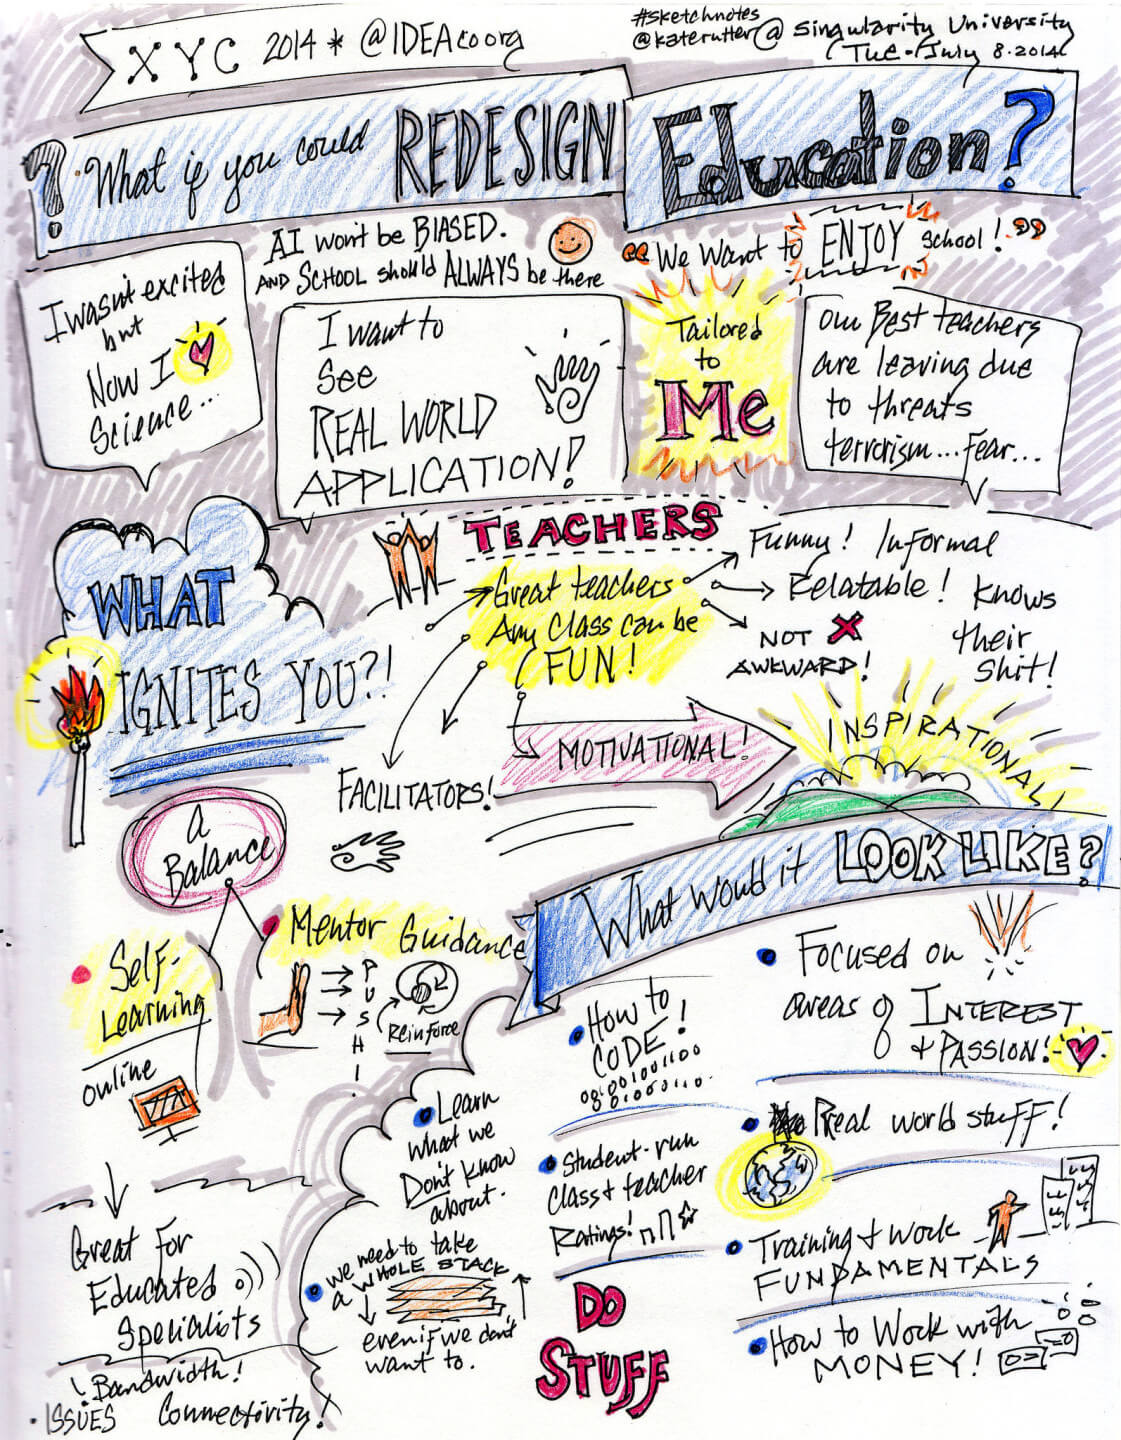 XYC 2014 * @IDEAcoorg
#sketchnotes
@katerutter @ Singularity University
Tue. July 8. 2014
? What if you could REDESIGN Education?
AI won't be BIASED.
AND SCHOOL should ALWAYS be there
"We Want to ENJOY school!"
I wasn't excited
but
Now I
Science...
I want to
see
REAL WORLD
APPLICATION!
Tailored
to
Me
our Best teachers
are leaving due
to threats
terrorism... fear...
WHAT
IGNITES YOU?!
TEACHERS
Great teachers
Any Class can be
FUN!
Funny! Informal
Relatable!
Knows
their
shit!
NOT X
AWKWARD!
MOTIVATIONAL!
INSPIRATIONAL!
FACILITATORS!
a
Balance
Self-
Learning
online
Mentor Guidance
PUSH!
Reinforce
Great For
Educated
Specialists
! Bandwidth!
• ISSUES Connectivity!
What would it LOOK LIKE?
• Learn
what we
Don't know
about.
• we need to take
a WHOLE STACK
even if we don't
want to.
• How to
CODE!
• Student-run
Class + teacher
Ratings!
DO
STUFF
• Focused on
areas of INTEREST
+ PASSION!
• Real world stuff!
• Training + work
FUNDAMENTALS
• How to Work with
MONEY!